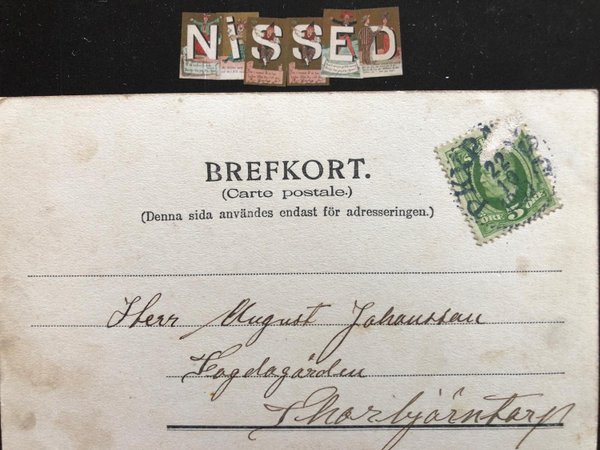 NiSSED
BREFKORT.
(Carte postale.)
(Denna sida användes endast för adresseringen.)
22
5 ÖRE
Herr August Johansson
Fogdagården
Thorbjörntorp